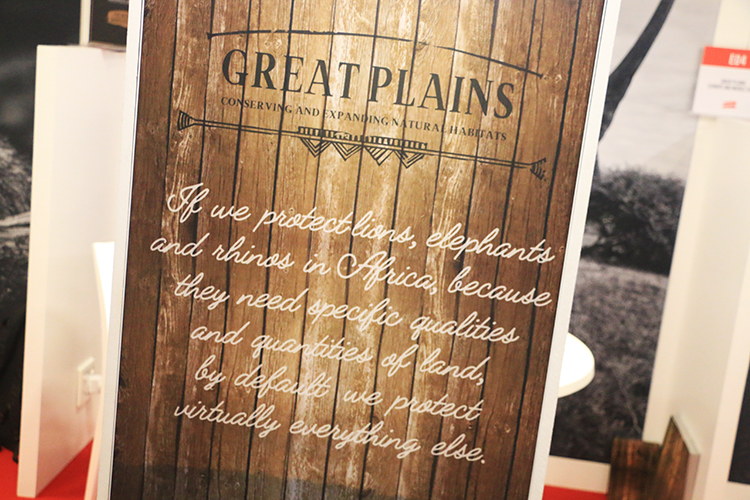 GREAT PLAINS
CONSERVING AND EXPANDING NATURAL HABITATS
If we protect lions, elephants
and rhinos in Africa, because
they need specific qualities
and quantities of land,
by default we protect
virtually everything else.
E04